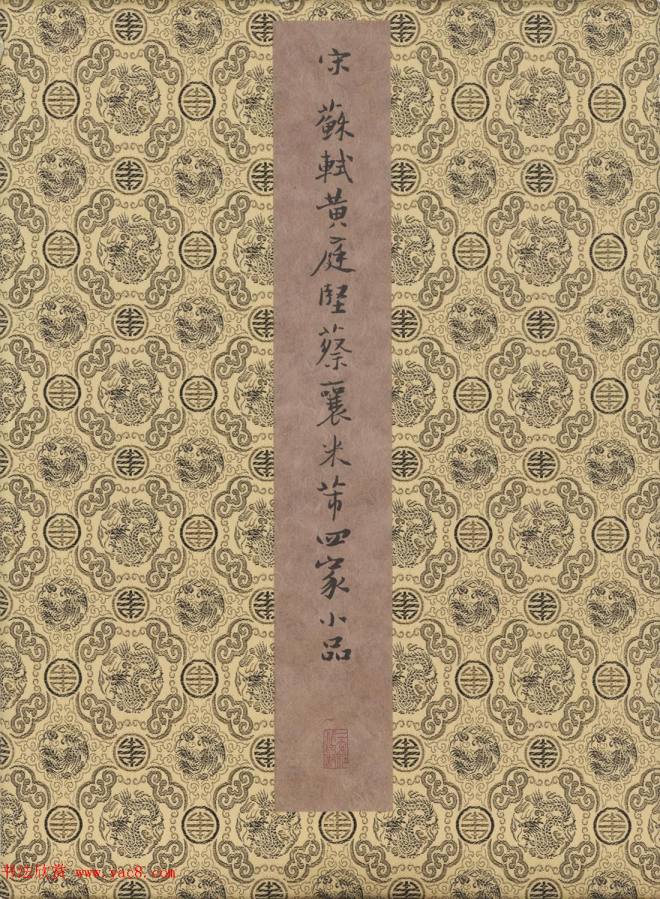 宋 蘇軾黄庭堅蔡襄米芾四家小品
书法欣赏 www.yac8.com